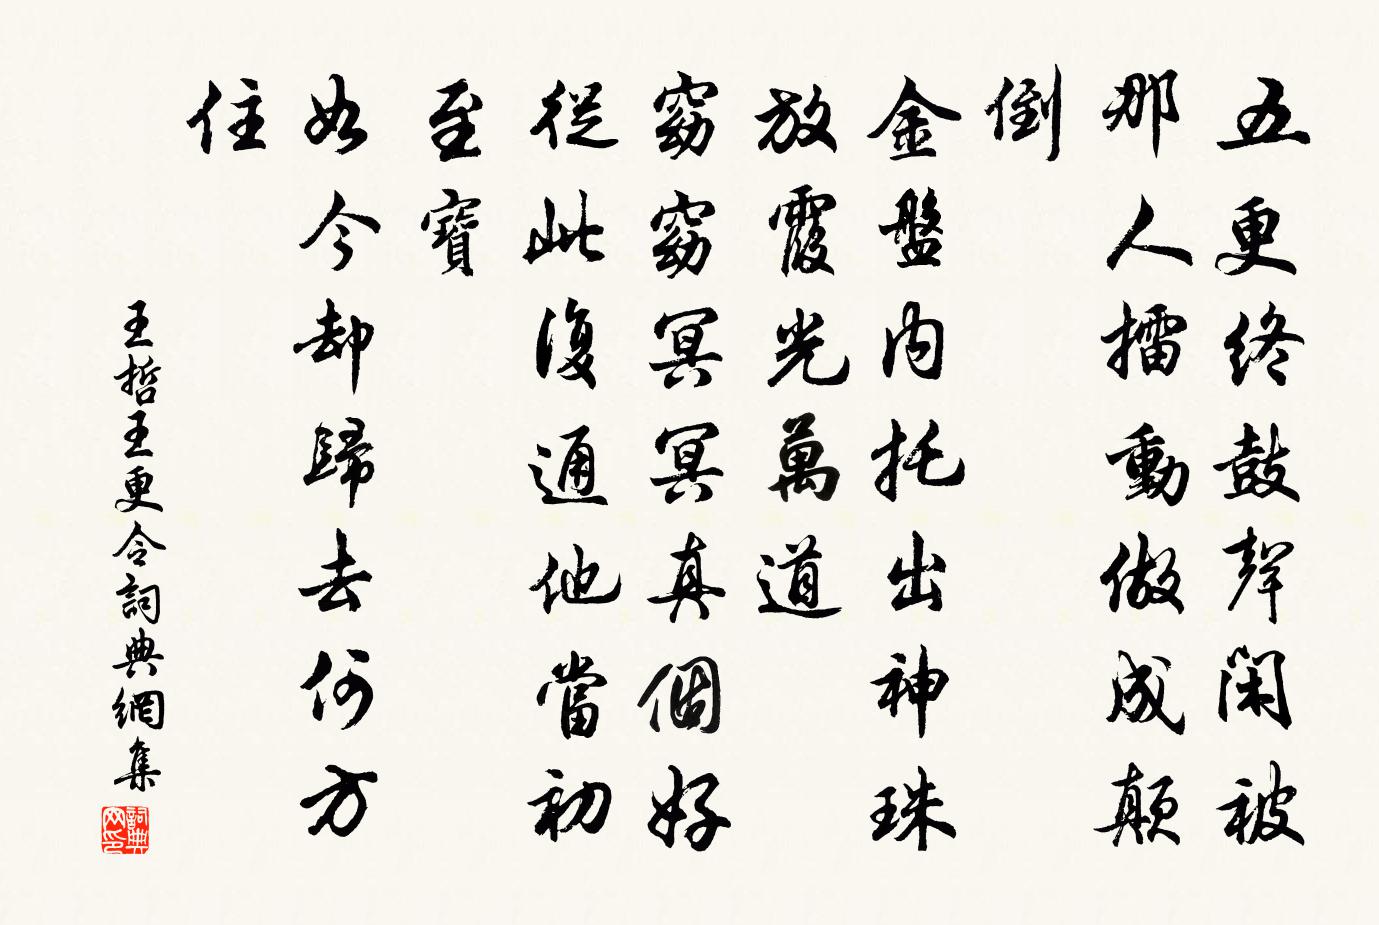 五更終鼓聲閑被
那人擂動做成顛
倒
金盤內托出神珠
放霞光萬道
窈窈冥冥真個好
從此復通他當初
至寶
如今却歸去何方
住
王哲王更令詞典網集
詞典网印